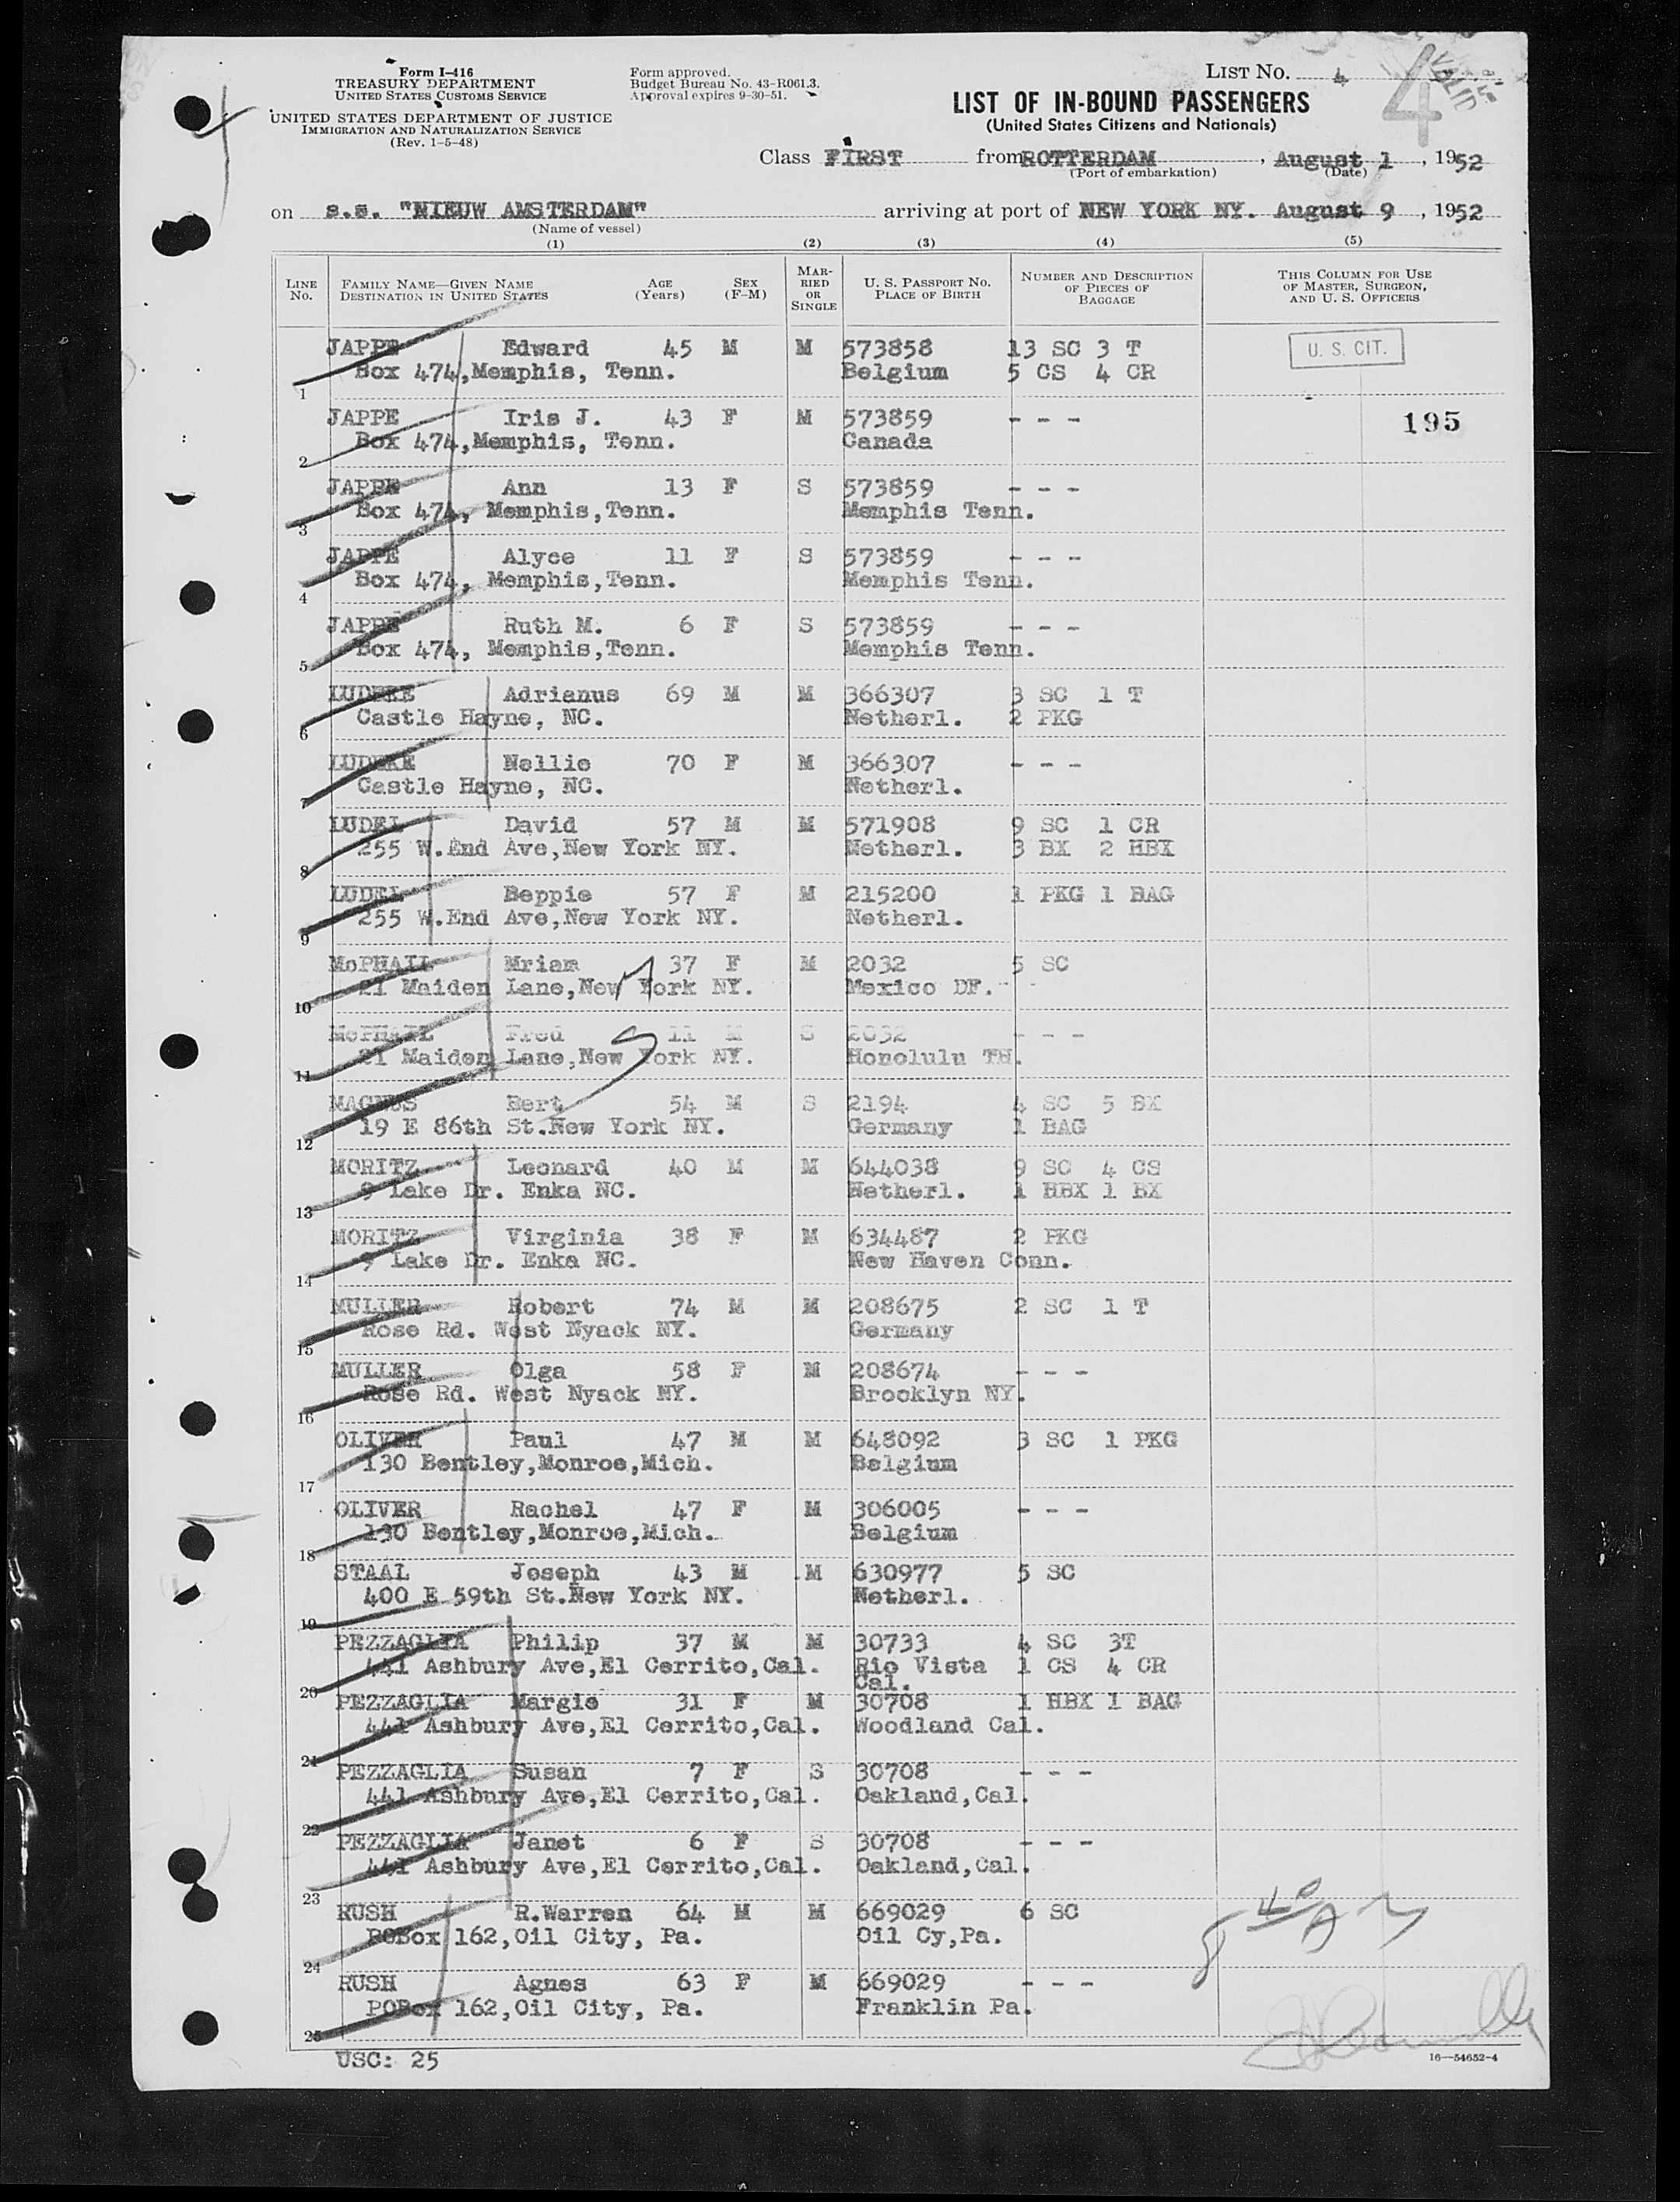 Form I-416
TREASURY DEPARTMENT
UNITED STATES CUSTOMS SERVICE
UNITED STATES DEPARTMENT OF JUSTICE
IMMIGRATION AND NATURALIZATION SERVICE
(Rev. 1-5-48)
Form approved.
Budget Bureau No. 43-R061.3.
Approval expires 9-30-51.
LIST NO. 4
4
VALID
LIST OF IN-BOUND PASSENGERS
(United States Citizens and Nationals)
Class FIRST from ROTTERDAM, August 1, 1952
(Port of embarkation) (Date)
on s.s. "NIEUW AMSTERDAM" arriving at port of NEW YORK NY. August 9, 1952
(Name of vessel)
(1) (2) (3) (4) (5)
LINE NO. FAMILY NAME—GIVEN NAME DESTINATION IN UNITED STATES AGE (Years) SEX (F-M) MARRIED OR SINGLE U. S. PASSPORT NO. PLACE OF BIRTH NUMBER AND DESCRIPTION OF PIECES OF BAGGAGE THIS COLUMN FOR USE OF MASTER, SURGEON, AND U. S. OFFICERS
JAPPE Edward 45 M M 573858 13 SC 3 T U. S. CIT.
1 Box 474,Memphis, Tenn. Belgium 5 CS 4 CR
JAPPE Iris J. 43 F M 573859 - - - 195
2 Box 474,Memphis, Tenn. Canada
JAPPE Ann 13 F S 573859 - - -
3 Box 474, Memphis,Tenn. Memphis Tenn.
JAPPE Alyce 11 F S 573859 - - -
4 Box 474, Memphis,Tenn. Memphis Tenn.
JAPPE Ruth M. 6 F S 573859 - - -
5 Box 474, Memphis,Tenn. Memphis Tenn.
LUDEKE Adrianus 69 M M 366307 3 SC 1 T
6 Castle Hayne, NC. Netherl. 2 PKG
LUDEKE Nellie 70 F M 366307 - - -
7 Castle Hayne, NC. Netherl.
LUDEL David 57 M M 571908 9 SC 1 CR
8 255 W.End Ave,New York NY. Netherl. 3 BX 2 HBX
LUDEL Beppie 57 F M 215200 1 PKG 1 BAG
9 255 W.End Ave,New York NY. Netherl.
McPHAIL Mriam 37 F M 2032 5 SC
10 21 Maiden Lane,New York NY. Mexico DF.
McPHAIL Fred 11 M S 2032 - - -
11 21 Maiden Lane,New York NY. Honolulu TH.
MAGNUS Bert 54 M S 2194 4 SC 5 BX
12 19 E 86th St.New York NY. Germany 1 BAG
MORITZ Leonard 40 M M 644038 9 SC 4 CS
13 9 Lake Dr. Enka NC. Netherl. 1 HBX 1 BX
MORITZ Virginia 38 F M 634487 2 PKG
14 9 Lake Dr. Enka NC. New Haven Conn.
MULLER Robert 74 M M 208675 2 SC 1 T
15 Rose Rd. West Nyack NY. Germany
MULLER Olga 58 F M 208674 - - -
16 Rose Rd. West Nyack NY. Brooklyn NY.
OLIVER Paul 47 M M 648092 3 SC 1 PKG
17 130 Bentley,Monroe,Mich. Belgium
OLIVER Rachel 47 F M 306005 - - -
18 130 Bentley,Monroe,Mich. Belgium
STAAL Joseph 43 M M 630977 5 SC
19 400 E 59th St.New York NY. Netherl.
PEZZAGLIA Philip 37 M M 30733 4 SC 3T
20 441 Ashbury Ave,El Cerrito,Cal. Rio Vista Cal. 1 CS 4 CR
PEZZAGLIA Margie 31 F M 30708 1 HBX 1 BAG
21 441 Ashbury Ave,El Cerrito,Cal. Woodland Cal.
PEZZAGLIA Susan 7 F S 30708 - - -
22 441 Ashbury Ave,El Cerrito,Cal. Oakland,Cal.
PEZZAGLIA Janet 6 F S 30708 - - -
23 441 Ashbury Ave,El Cerrito,Cal. Oakland,Cal.
RUSH R.Warren 64 M M 669029 6 SC
24 POBox 162,Oil City, Pa. Oil Cy,Pa.
RUSH Agnes 63 F M 669029 - - -
25 POBox 162,Oil City, Pa. Franklin Pa.
USC: 25
16—54652-4